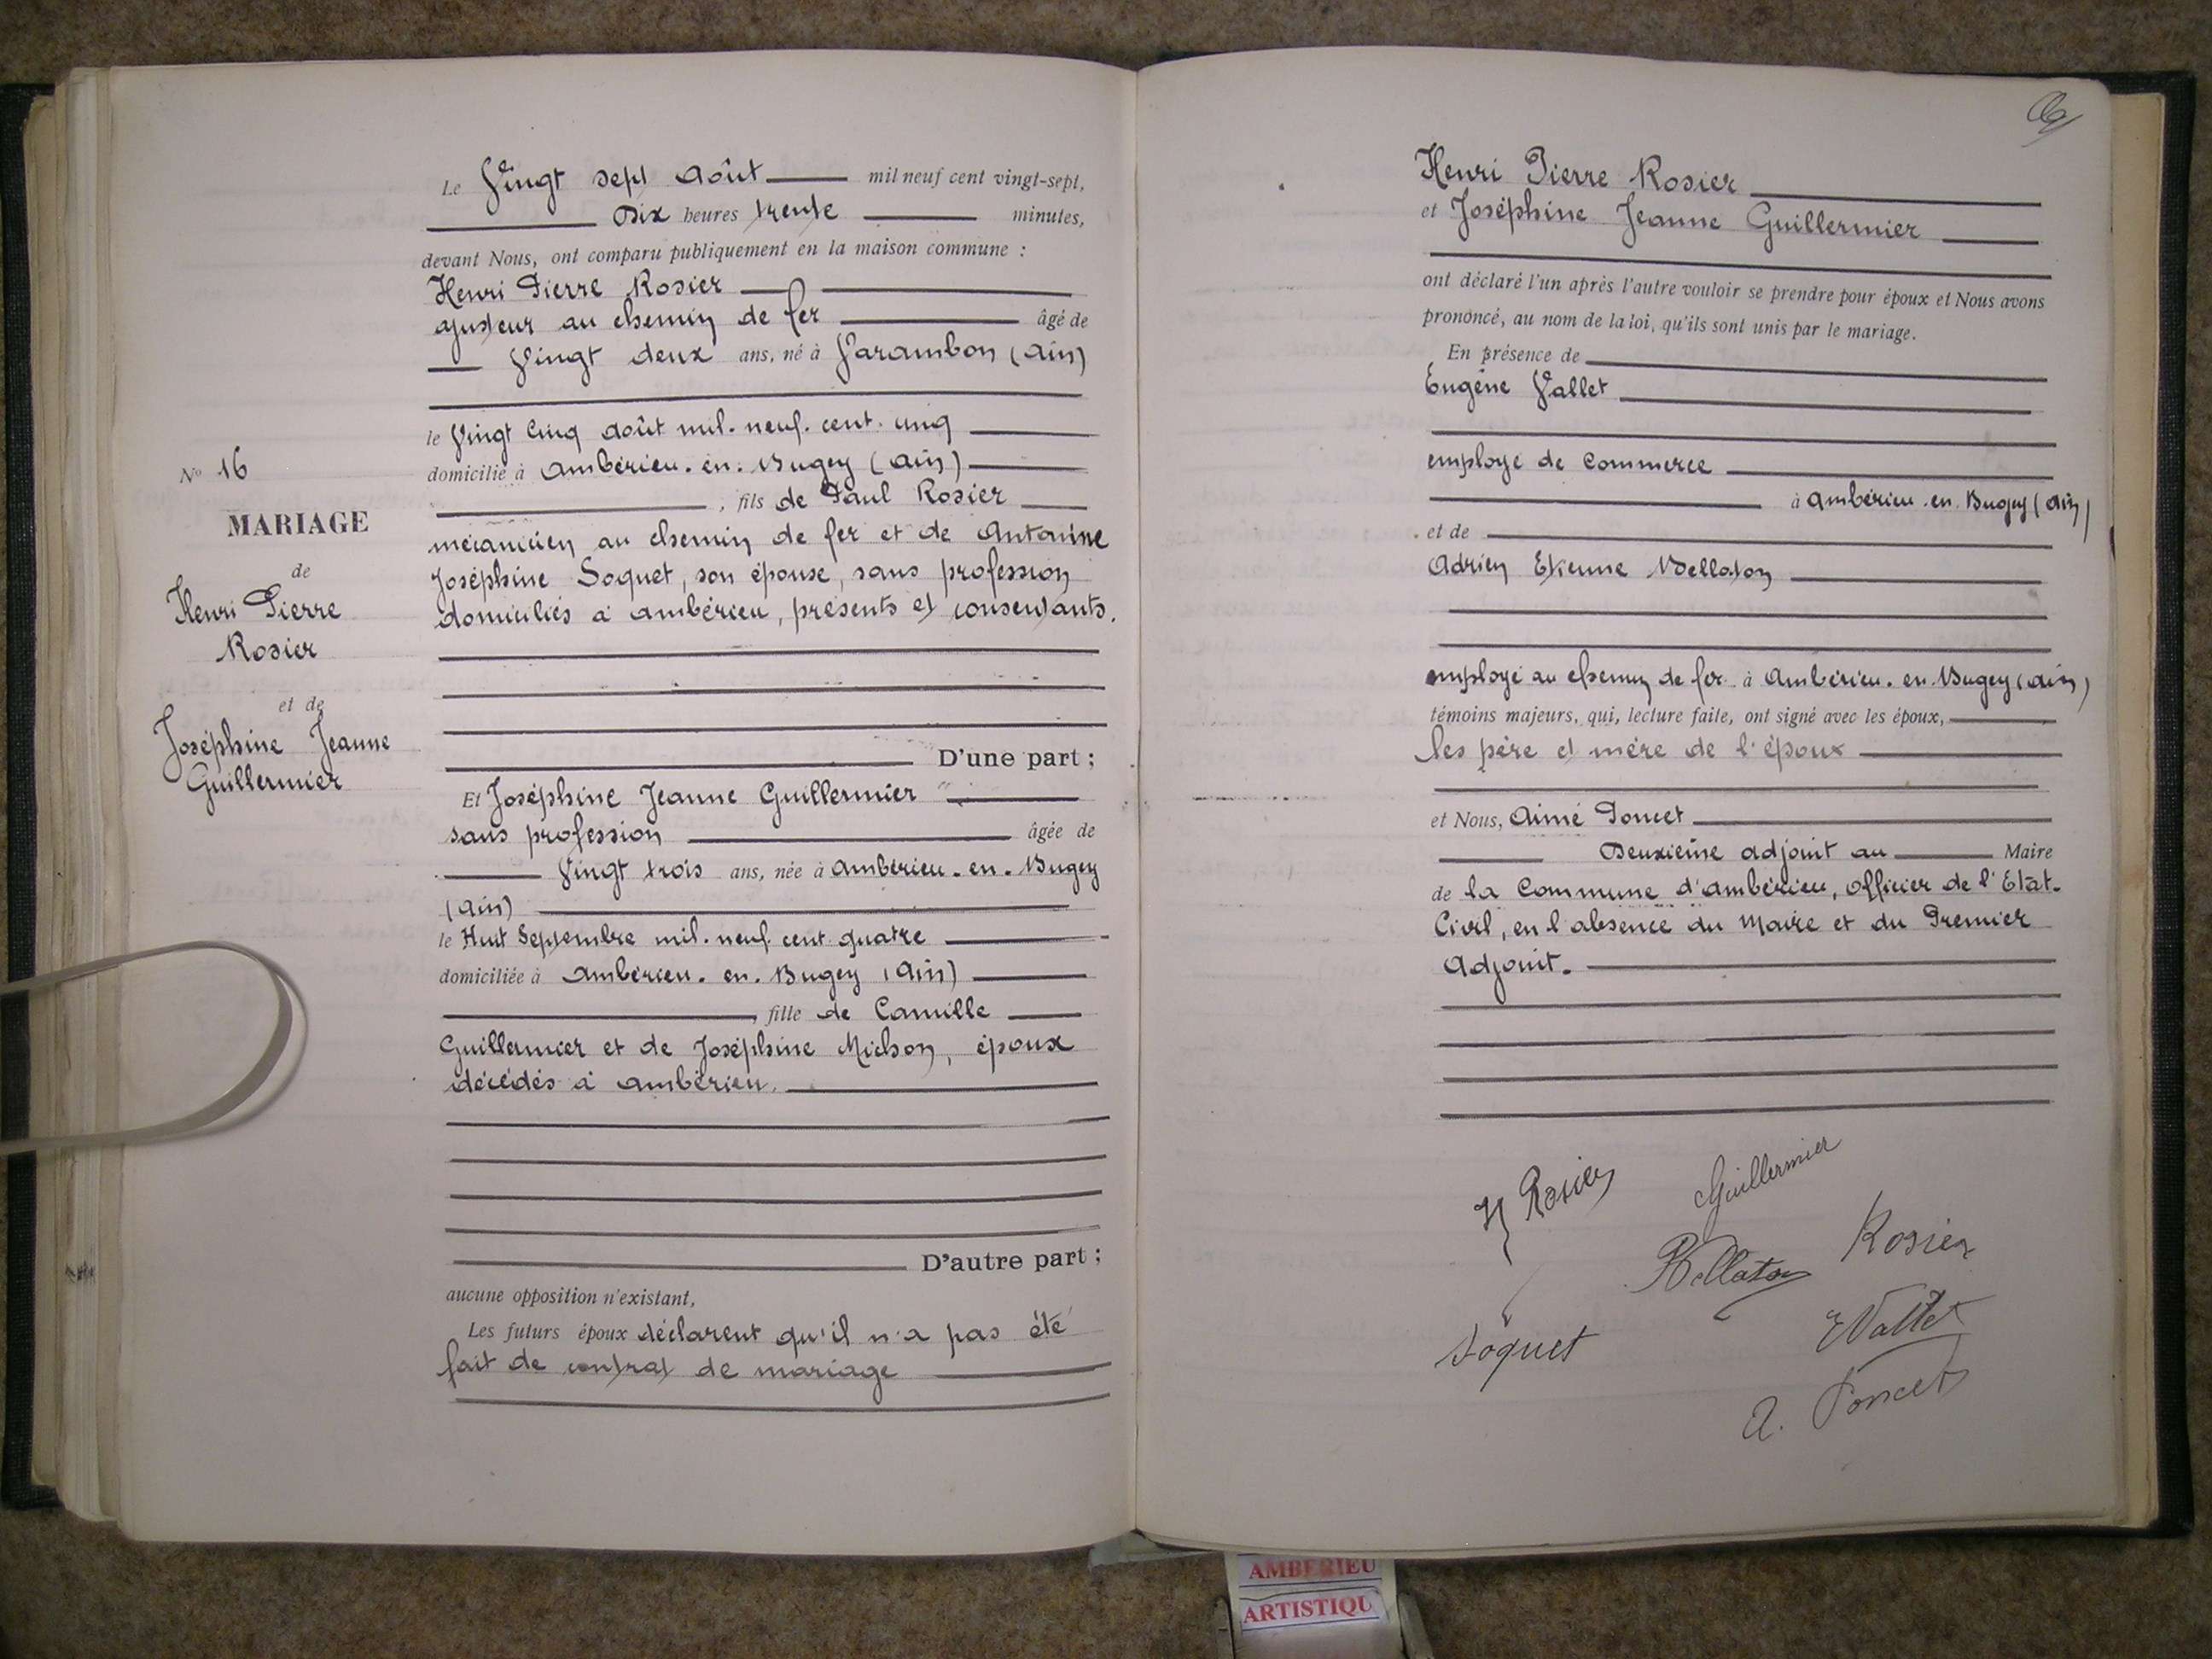 Le Vingt sept Août mil neuf cent vingt-sept,
Dix heures trente minutes,
devant Nous, ont comparu publiquement en la maison commune :
Henri Pierre Rosier
ajusteur au chemin de fer âgé de
Vingt deux ans, né à Varambon (Ain)
le Vingt Cinq août mil. neuf. cent. cinq
domicilié à Ambérieu. en. Bugey (Ain)
, fils de Paul Rosier
mécanicien au chemin de fer et de Antoinine
Joséphine Soquet, son épouse, sans profession
domiciliés à Ambérieu, présents et consentants.
D'une part ;
Et Joséphine Jeanne Guillermier
sans profession âgée de
Vingt trois ans, née à Ambérieu. en. Bugey
(Ain)
le Huit Septembre mil. neuf. cent. quatre
domiciliée à Ambérieu. en. Bugey (Ain)
, fille de Camille
Guillermier et de Joséphine Michon, époux
décédés à Ambérieu.
D'autre part ;
aucune opposition n'existant,
Les futurs époux déclarent qu'il n'a pas été
fait de contrat de mariage
No 16
MARIAGE
de
Henri Pierre
Rosier
et de
Joséphine Jeanne
Guillermier
Henri Pierre Rosier
et Joséphine Jeanne Guillermier
ont déclaré l'un après l'autre vouloir se prendre pour époux et Nous avons
prononcé, au nom de la loi, qu'ils sont unis par le mariage.
En présence de
Eugène Vallet
employé de commerce
à Ambérieu. en. Bugey (Ain)
et de
Adrien Etienne Bellaton
employé au chemin de fer à Ambérieu. en. Bugey (Ain)
témoins majeurs, qui, lecture faite, ont signé avec les époux,
les père et mère de l'époux
et Nous, Aimé Poncet
Deuxième adjoint au Maire
de la Commune d'Ambérieu, Officier de l'Etat.
Civil, en l'absence du Maire et du Premier
Adjoint.
H Rosier
Guillermier
Bellaton
Rosier
Soquet
E Vallet
A. Poncet
AMBERIEU
ARTISTIQU